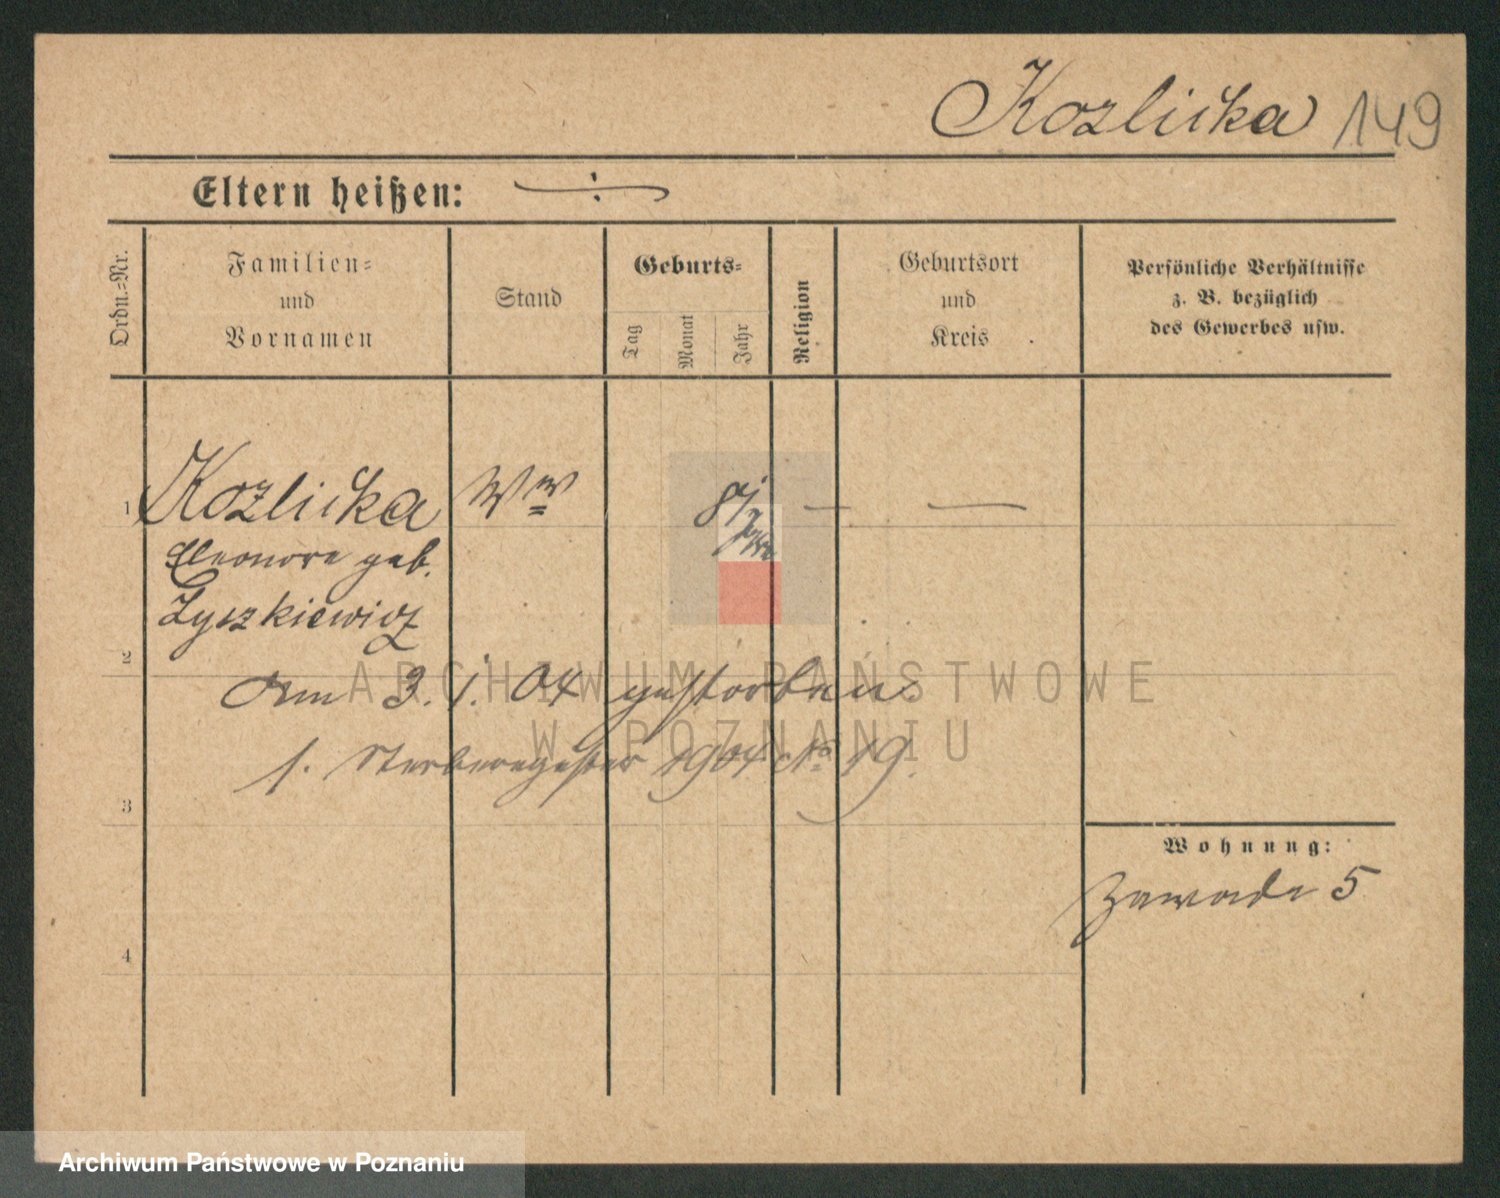 Kozlicka 149
Eltern heißen: ÷
Ordn.-Nr.
Familien-
und
Vornamen
Stand
Geburts-
Tag
Monat
Jahr
Religion
Geburtsort
und
Kreis
Persönliche Verhältnisse
z. B. bezüglich
des Gewerbes usw.
1 Kozlicka Ww — —
Eleonore geb.
Zyszkiewicz
2
Am 3. 1. 04 gestorben
s. Sterberegister 1904 No 19.
3
Wohnung:
Zawade 5
4
ARCHIWUM PAŃSTWOWE
W POZNANIU
Archiwum Państwowe w Poznaniu